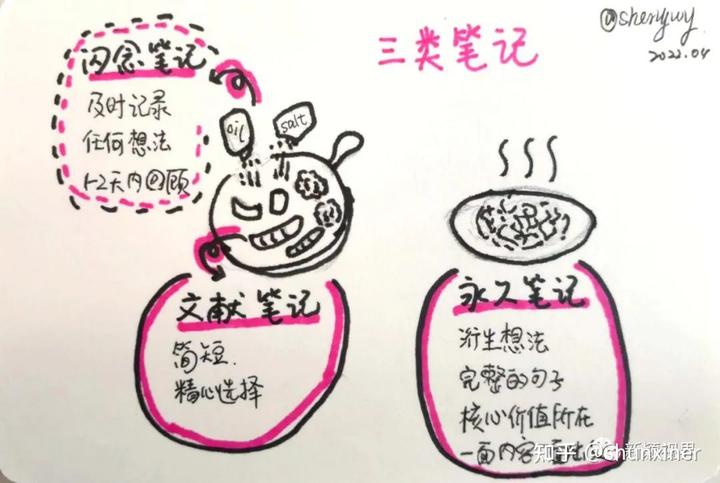 @shenyuy
2022.04
三类笔记
闪念笔记
及时记录
任何想法
1-2天内回顾
oil
salt
文献笔记
简短
精心选择
永久笔记
衍生想法
完整的句子
核心价值所在
一面内容
知乎 @shunxiner
新颖视界